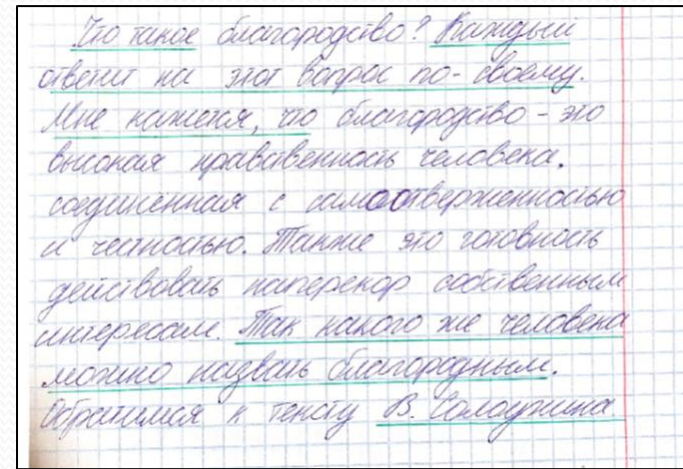 Что такое благородство? Каждый
ответит на этот вопрос по-своему.
Мне кажется, что благородство - это
высокая нравственность человека,
соединенная с самоотверженностью
и честностью. Также это готовность
действовать наперекор собственным
интересам. Так какого же человека
можно назвать благородным.
Обратимся к тексту В. Солоухина